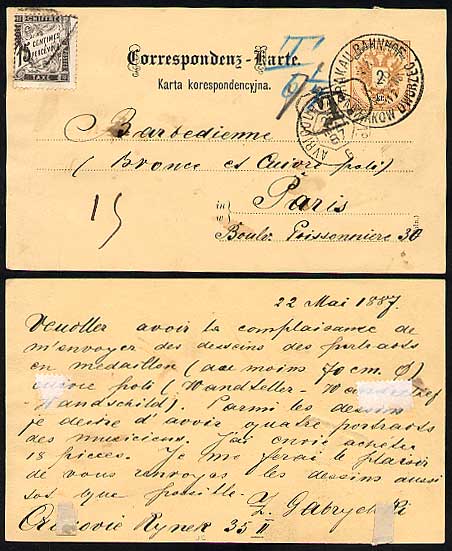 15 CENTIMES
TAXE
Correspondenz-Karte.
Karta korespondencyjna.
T
KRAKAU BAHNHOF
KRAKÓW DWORZEC
2
Barbedienne
(Bronce et Cuivre poli)
in
w
Paris
15
Boulv. Poissonniere 30
22 Mai 1887.
Veuoller avoir la complaisance de
m'envoyer des desseins des portraits
en medaillon (au moins 70 cm. Ø)
cuivre poli (Wandteller -
Wandschild). Parmi les dessins
je desire d'avoir quatre portraits
des musiciens. J'ai envie acheter
18 pieces. Je me ferai le plaisir
de vous renvoyer les dessins aussi
tot que possible.
Cracovie Rynek 35 II